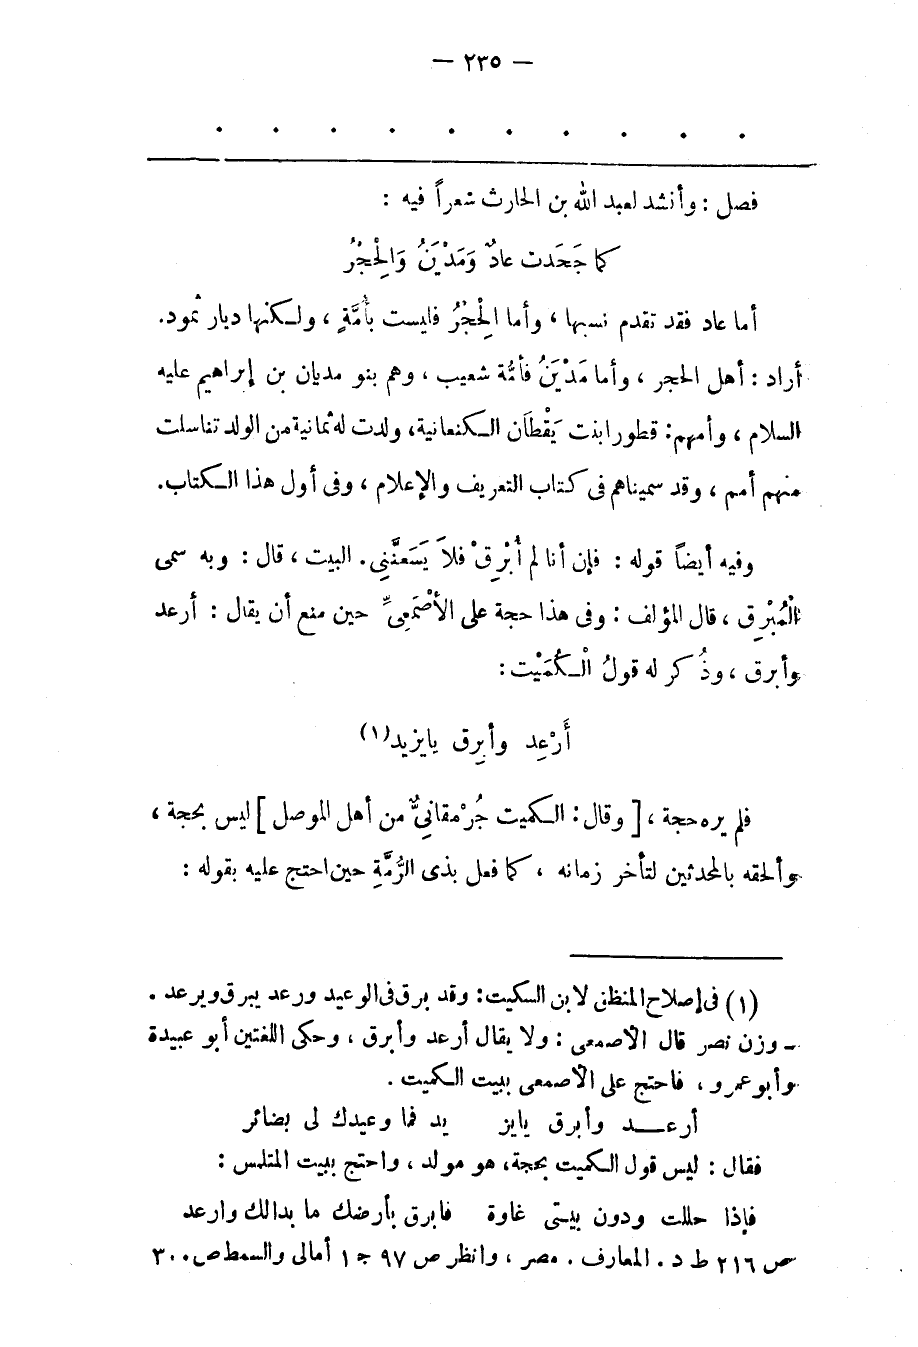 — ٢٣٥ —
. . . . . . . . . .
فصل : وأنشد لعبد الله بن الحارث شعراً فيه :
كما جَحَدت عادٌ وَمَدْيَنُ وَالْحِجْرُ
أما عاد فقد تقدم نسبها ، وأما الْحِجْرُ فليست بأُمَّةٍ ، ولكنها ديار ثمود.
أراد : أهل الحجر ، وأما مَدْيَنُ فأمُّة شعيب ، وهم بنو مديان بن إبراهيم عليه
السلام ، وأمهم: قطورا بنت يَقْطَان الكنعانية، ولدت له ثمانية من الولد تناسلت
منهم أمم ، وقد سميناهم فى كتاب التعريف والإعلام ، وفى أول هذا الكتاب.
وفيه أيضاً قوله : فإن أنا لم أُبْرِقْ فلاَ يَسَعنَّنِى. البيت ، قال : وبه سمى
الْمُبْرِق ، قال المؤلف : وفى هذا حجة على الأصْمَعِىِّ حين منع أن يقال : أرعد
وأبرق ، وذُكر له قولُ الْكُمَيْت :
أَرْعِد وأبرِق يايزيد(١)
فلم يره حجة ، [ وقال: الكميت جُرْمقانِىٌّ من أهل الموصل ] ليس بحجة ،
وألحقه بالمحدثين لتأخر زمانه ، كما فعل بذى الرُّمَّةِ حين احتج عليه بقوله :
(١) فى إصلاح المنطق لابن السكيت: وقد برق فى الوعيد ورعد يبرق ويرعد .
ـ وزن نصر قال الأصمعى : ولا يقال أرعد وأبرق ، وحكى اللغتين أبو عبيدة
وأبو عمرو ، فاحتج على الأصمعى ببيت الكميت .
أرعـــد وأبرق يايز يد فما وعيدك لى بضائر
فقال : ليس قول الكميت بحجة، هو مولد ، واحتج ببيت المتلمس :
فإذا حللت ودون بيتى غاوة فابرق بأرضك ما بدالك وارعد
ص ٢١٦ ط د . المعارف . مصر ، وانظر ص ٩٧ ج ١ أمالى والسمط ص ٣٠٠